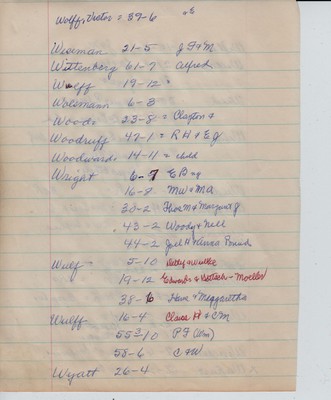 Wolff, Victor = 39-6
Wiseman 21-5 J F & M
Wittenberg 61-7 Alfred
Wolff 19-12
Wolsmann 6-3
Woods 23-8 = Clayton &
Woodruff 47-1 = R H & E J
Woodwards 14-11 = child
Wright 6-7 E B
16-8 MW & MA
30-2 & Margaret J
43-2 Woody & Nell
44-2 Joel H
Wulf 5-10
19-12 Edwards & - Moeller
38-6 Hans & Meggaretha
Wulff 16-4 Claus H & C M
55-10 P F (Wm)
55-6 C & W
Wyatt 26-4